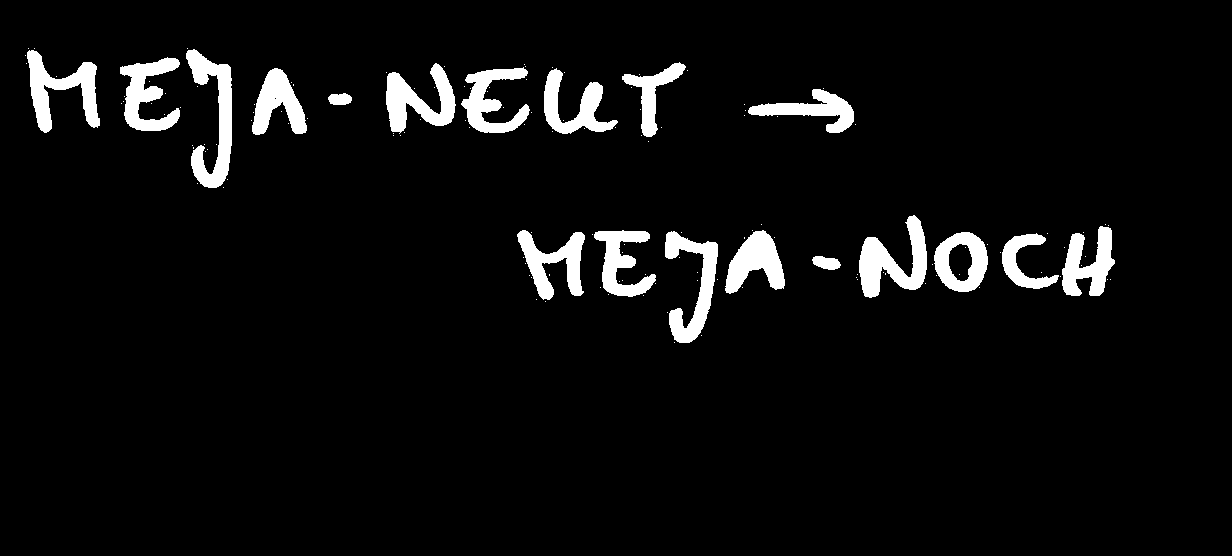 MEJA-NEUT →
MEJA-NOCH